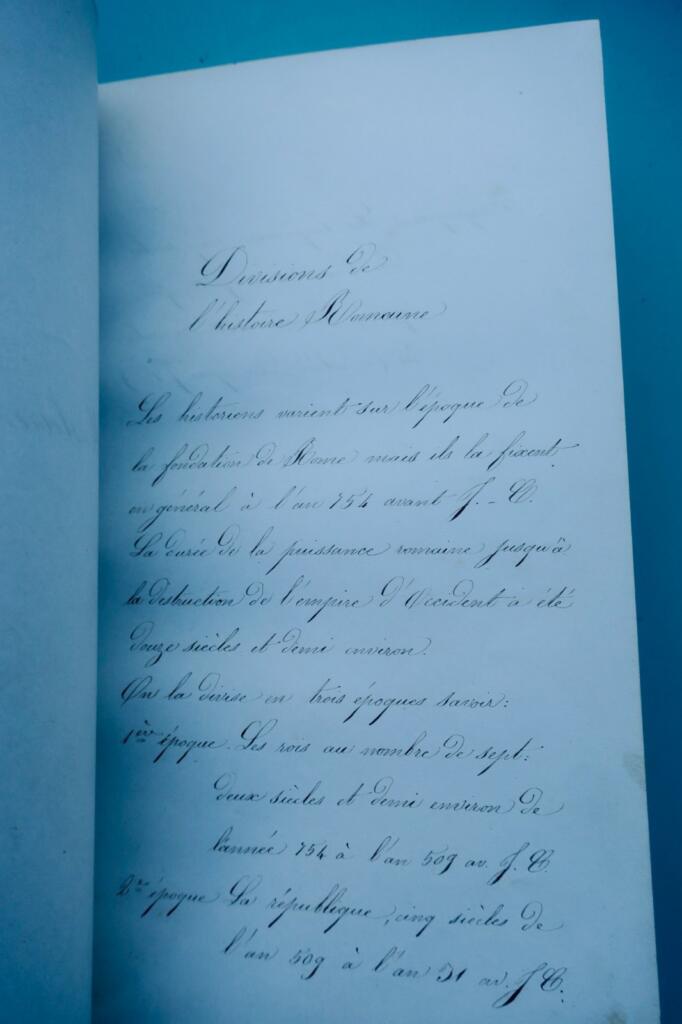 Divisions de
l'histoire Romaine
Les historiens varient sur l'époque de
la fondation de Rome mais ils la fixent
en général à l'an 754 avant J.-C.
La durée de la puissance romaine jusqu'à
la destruction de l'empire d'Occident a été
douze siècles et demi environ.
On la divise en trois époques savoir:
1ère époque. Les rois au nombre de sept:
deux siècles et demi environ de
l'année 754 à l'an 509 av. J. C.
2me époque La république, cinq siècles de
l'an 509 à l'an 31 av. J C.